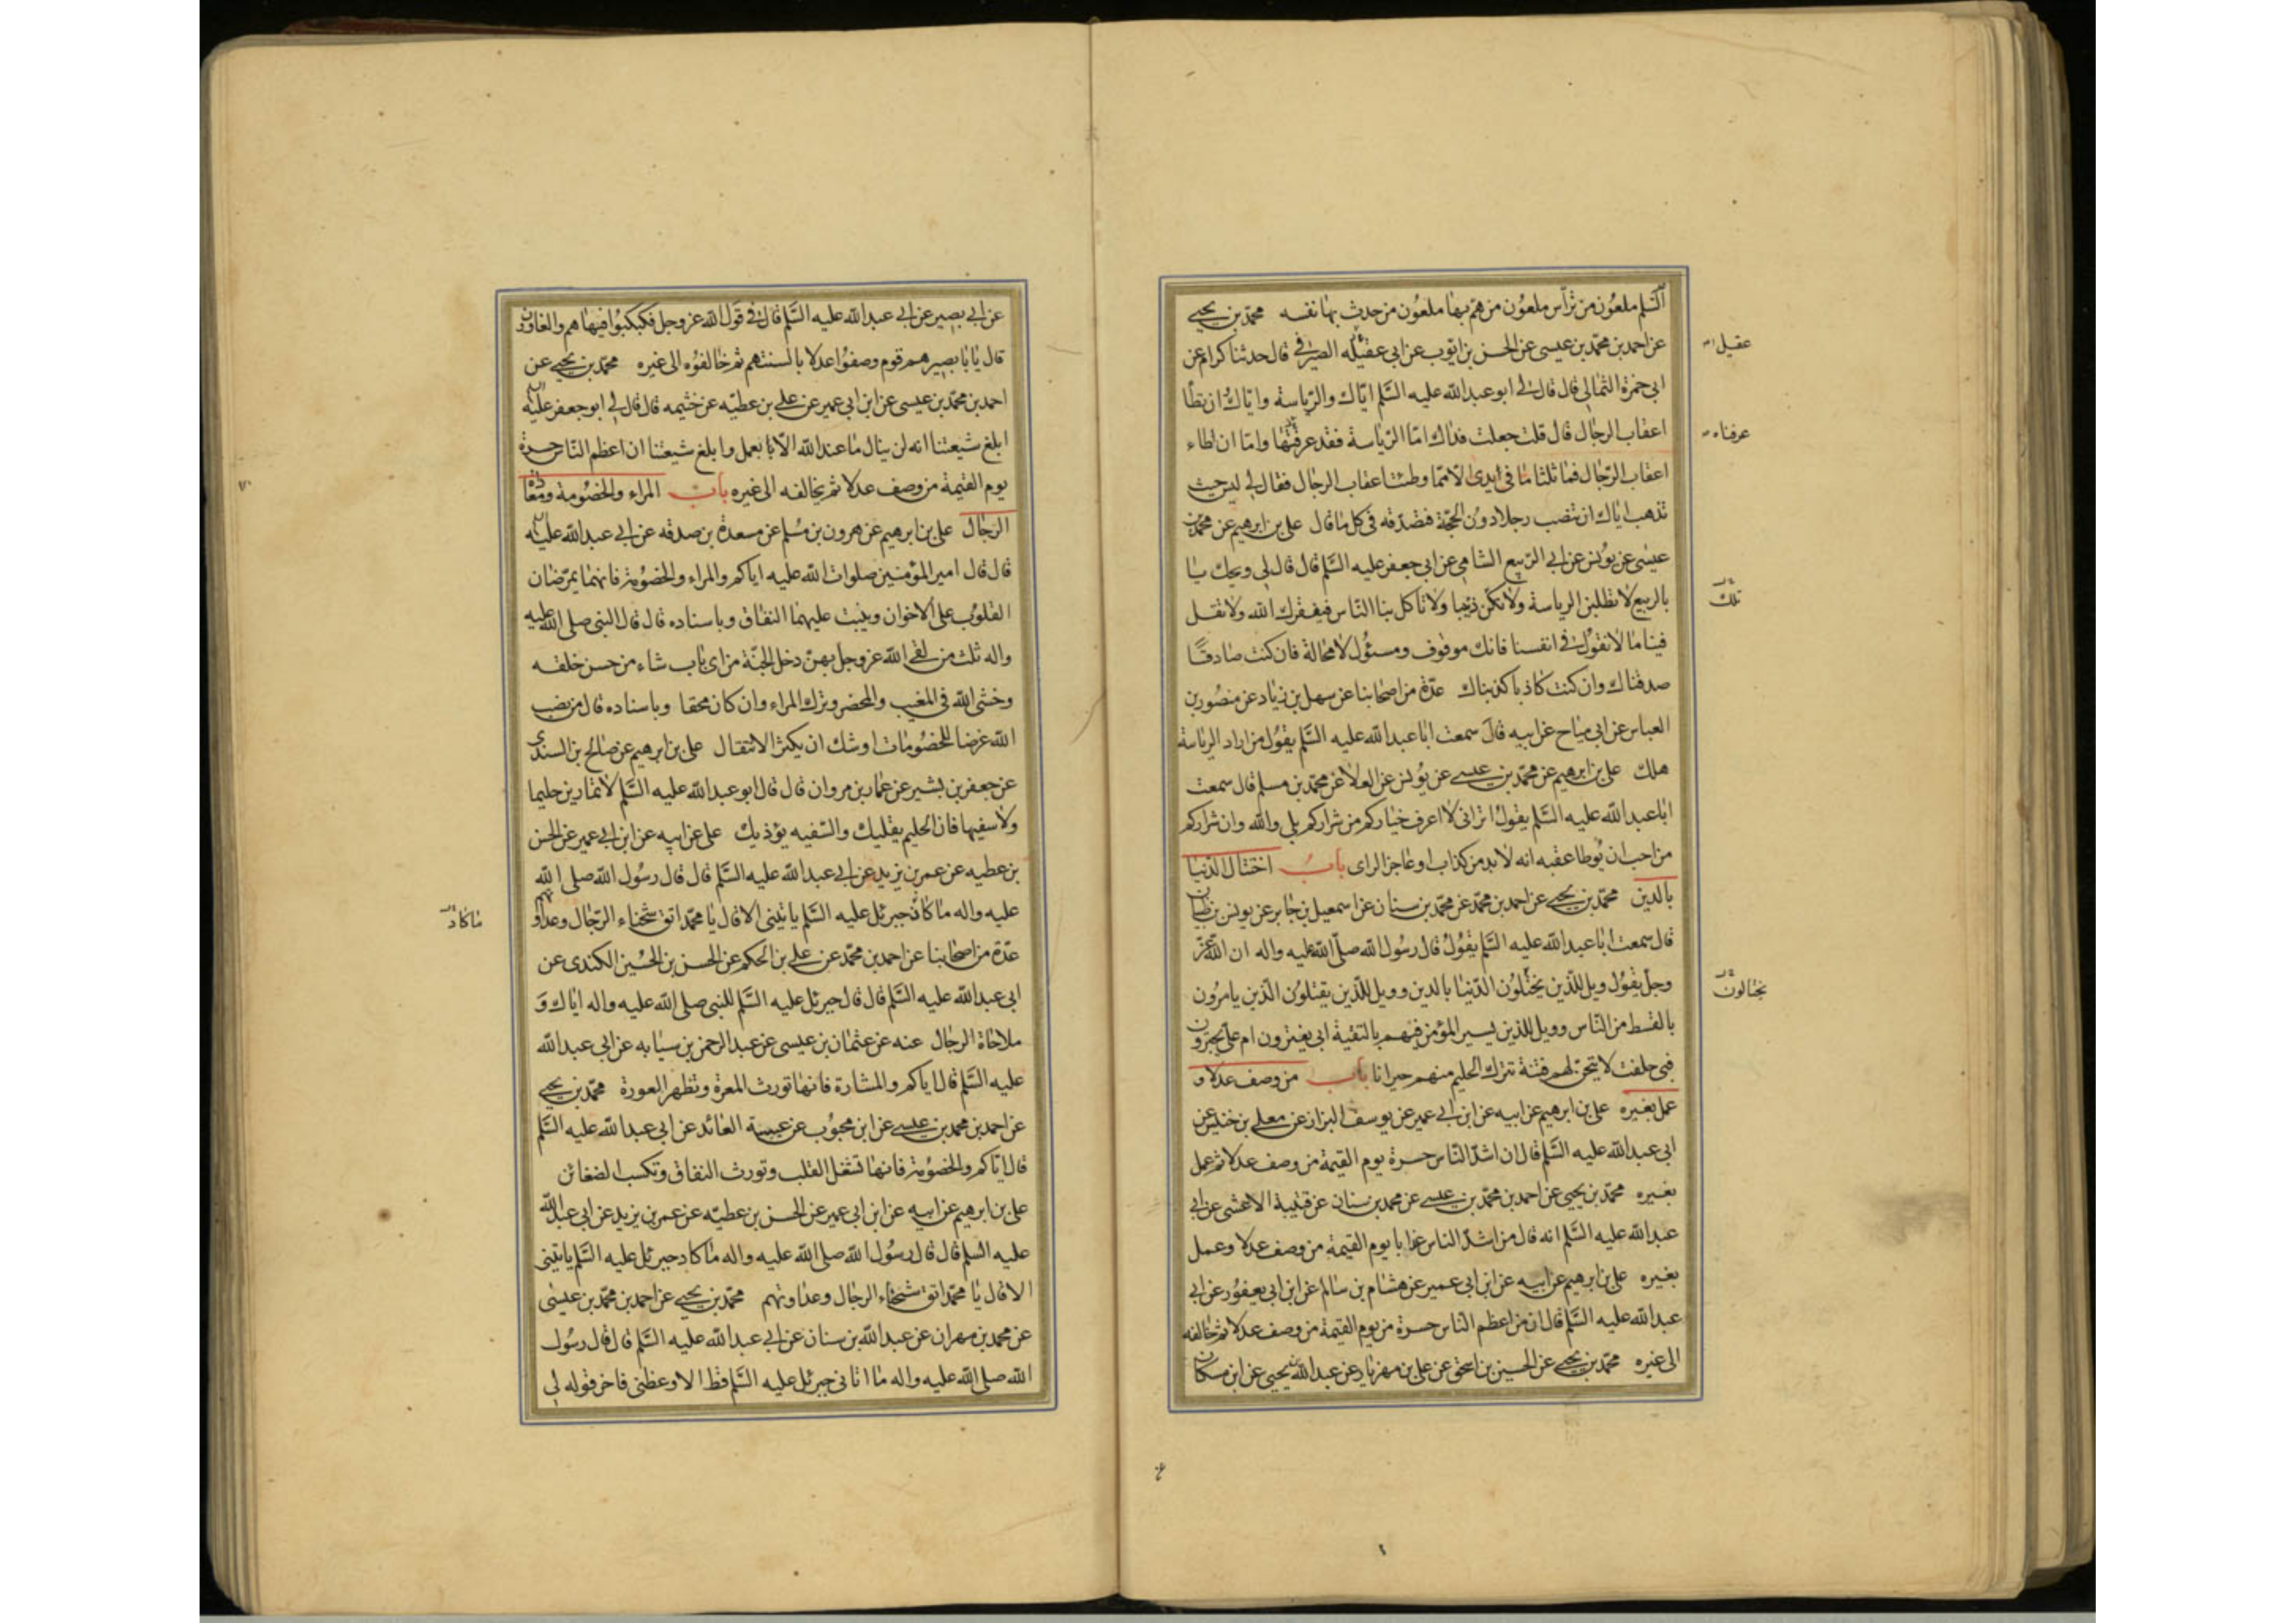 السلم ملعون من ترأس ملعون من هم بها ملعون من حدث بها نفسه محمد بن يحيى
عن احمد بن محمد بن عيسى عن الحسن بن ايوب عن ابى عقيله الصيرفى قال حدثنا كرام عن
ابى حمزة الثمالى قال قال لى ابو عبد الله عليه السلم اياك والرياسة واياك ان تطأ
اعقاب الرجال قال قلت جعلت فداك اما الرياسة فقد عرفتها واما ان اطاء
اعقاب الرجال فما ثلثا ما فى ايدى الا مما وطئت اعقاب الرجال فقال لى ليس حيث
تذهب اياك ان تنصب رجلا دون الحجة فتصدقه فى كل ما قال على بن ابرهيم عن محمد بن
عيسى عن يونس عن ابى الربيع الشامى عن ابى جعفر عليه السلم قال قال لى ويحك يا
بالربيع لا تطلبن الرياسة ولا تكن ذئبا ولا تاكل بنا الناس فيفقرك الله ولا تقل
فينا ما لا نقول فى انفسنا فانك موقوف ومسئول لا محالة فان كنت صادقا
صدقناك وان كنت كاذبا كذبناك عدة من اصحابنا عن سهل بن زياد عن منصور بن
العباس عن ابى مياح عن ابيه قال سمعت ابا عبد الله عليه السلم يقول من اراد الرياسة
هلك على بن ابرهيم عن محمد بن عيسى عن يونس عن العلا عن محمد بن مسلم قال سمعت
ابا عبد الله عليه السلم يقول اترانى لا اعرف خياركم من شراركم بلى والله وان شراركم
من احب ان يوطا عقبه انه لا بد من كذاب او عاجز الراى باب اختتال الدنيا
بالدين محمد بن يحيى عن احمد بن محمد عن محمد بن سنان عن اسمعيل بن جابر عن يونس بن ظبيان
قال سمعت ابا عبد الله عليه السلم يقول قال رسول الله صلى الله عليه واله ان الله عز
وجل يقول ويل للذين يختلون الدنيا بالدين وويل للذين يقتلون الذين يامرون
بالقسط من الناس وويل للذين يسير المؤمن فيهم بالتقية ابى يغترون ام على يجترون
فبى حلفت لاتيحن لهم فتنة تترك الحليم منهم حيرانا باب من وصف عدلا و
عمل بغيره على بن ابرهيم عن ابيه عن ابن ابى عمير عن يوسف البزاز عن معلى بن خنيس عن
ابى عبد الله عليه السلم قال ان اشد الناس حسرة يوم القيمة من وصف عدلا ثم عمل
بغيره محمد بن يحيى عن احمد بن محمد بن عيسى عن محمد بن سنان عن قتيبة الاعشى عن ابى
عبد الله عليه السلم انه قال من اشد الناس عذابا يوم القيمة من وصف عدلا وعمل
بغيره على بن ابرهيم عن ابيه عن ابن ابى عمير عن هشام بن سالم عن ابن ابى يعفور عن ابى
عبد الله عليه السلم قال ان من اعظم الناس حسرة من يوم القيمة من وصف عدلا ثم خالفه
الى غيره محمد بن يحيى عن الحسين بن اسحق عن على بن مهزيار عن عبد الله بن يحيى عن ابن مسكان
عقيل
عرفناه
تلك
يختالون
عن ابى بصير عن ابى عبد الله عليه السلم قال فى قول الله عز وجل فكبكبوا فيها هم والغاون
قال يا با بصير هم قوم وصفوا عدلا بالسنتهم ثم خالفوه الى غيره محمد بن يحيى عن
احمد بن محمد بن عيسى عن ابن ابى عمير عن على بن عطيه عن خثيمه قال قال لى ابو جعفر عليه
ابلغ شيعتنا انه لن ينال ما عند الله الا با بعمل وابلغ شيعتنا ان اعظم الناس حسرة
يوم القيمة من وصف عدلا ثم يخالفه الى غيره باب المراء والخصومة ومعادا
الرجال على بن ابرهيم عن هرون بن مسلم عن مسعدة بن صدقه عن ابى عبد الله عليه
قال قال امير المؤمنين صلوات الله عليه اياكم والمراء والخصومة فانهما يمرضان
القلوب على الاخوان وينبت عليهما النفاق وباسناده قال قال النبى صلى الله عليه
واله ثلث من لقى الله عز وجل بهن دخل الجنة من اى باب شاء من حسن خلقه
وخشى الله فى المغيب والمحضر وترك المراء وان كان محقا وباسناده قال من نصب
الله غرضا للخصومات اوشك ان يكثر الانتقال على بن ابرهيم عن صالح بن السندى
عن جعفر بن بشير عن عمار بن مروان قال قال ابو عبد الله عليه السلم لا تمارين حليما
ولا سفيها فان الحليم يقليك والسفيه يؤذيك على عن ابيه عن ابن ابى عمير عن الحسن
بن عطيه عن عمر بن يزيد عن ابى عبد الله عليه السلم قال قال رسول الله صلى الله
عليه واله ما كان جبرئل عليه السلم ياتينى الا قال يا محمد اتق شحناء الرجال وعداوتهم
عدة من اصحابنا عن احمد بن محمد عن على بن الحكم عن الحسن بن الحسين الكندى عن
ابى عبد الله عليه السلم قال قال جبرئل عليه السلم للنبى صلى الله عليه واله اياك و
ملاحاة الرجال عنه عن عثمان بن عيسى عن عبد الرحمن بن سيابه عن ابى عبد الله
عليه السلم قال اياكم والمشارة فانها تورث المعرة وتظهر العورة محمد بن يحيى
عن احمد بن محمد بن عيسى عن ابن محبوب عن عنبسة العائد عن ابى عبد الله عليه السلم
قال اياكم والخصومة فانها تشغل القلب وتورث النفاق وتكسب الضغائن
على بن ابرهيم عن ابيه عن ابن ابى عمير عن الحسن بن عطيه عن عمر بن يزيد عن ابى عبد الله
عليه السلم قال قال رسول الله صلى الله عليه واله ما كاد جبرئل عليه السلم ياتينى
الا قال يا محمد اتق شحناء الرجال وعداوتهم محمد بن يحيى عن احمد بن محمد بن عيسى
عن محمد بن مهران عن عبد الله بن سنان عن ابى عبد الله عليه السلم قال قال رسول
الله صلى الله عليه واله ما اتانى جبرئل عليه السلم قط الا وعظنى فاخر قوله لى
ما كاد